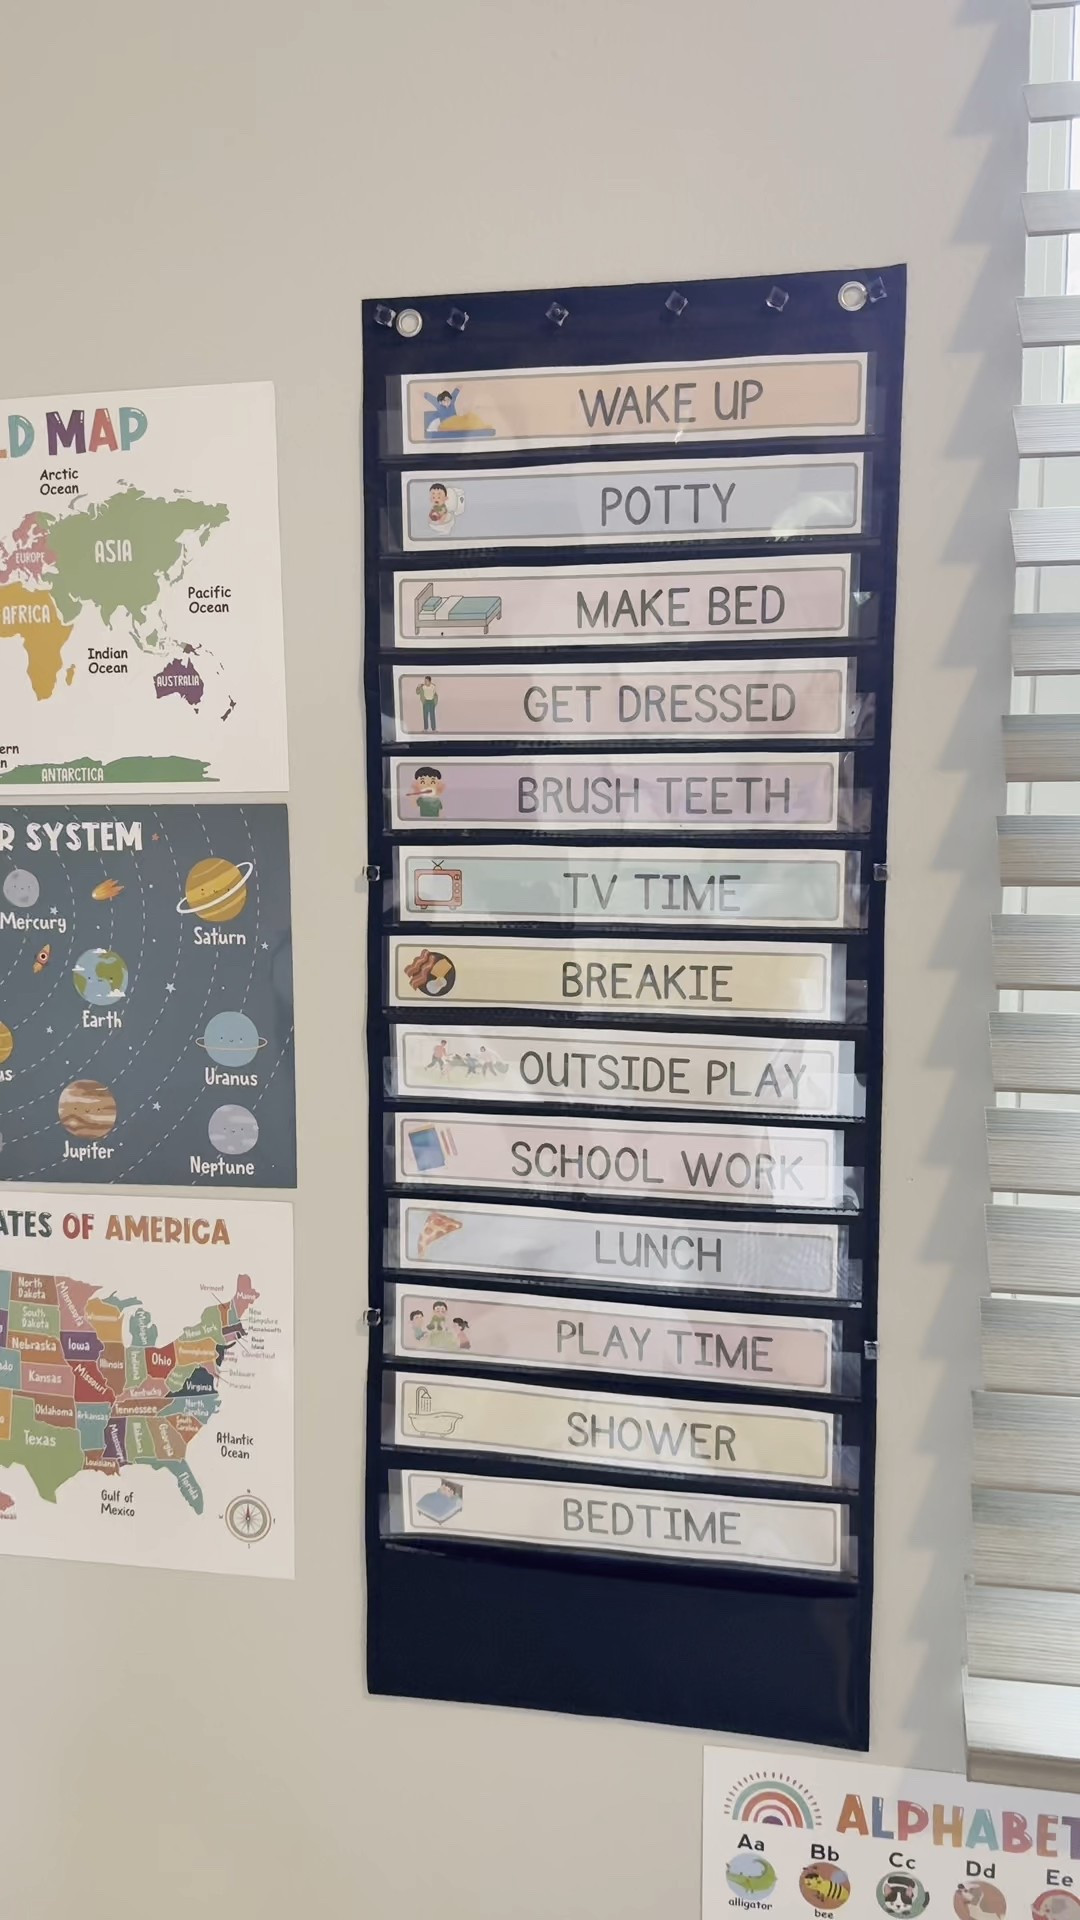 WAKE UP
POTTY
MAKE BED
GET DRESSED
BRUSH TEETH
TV TIME
BREAKIE
OUTSIDE PLAY
SCHOOL WORK
LUNCH
PLAY TIME
SHOWER
BEDTIME
LD MAP
Arctic
Ocean
EUROPE
ASIA
AFRICA
Pacific
Ocean
Indian
Ocean
AUSTRALIA
ern
n
ANTARCTICA
R SYSTEM
Mercury
Saturn
Earth
us
Uranus
Jupiter
Neptune
ATES OF AMERICA
North
Dakota
Minnesota
Vermont
Maine
South
Dakota
Wisconsin
Michigan
New York
New
Hampshire
Massachusetts
Rhode
Island
Connecticut
Nebraska
Iowa
Illinois
Indiana
Ohio
Pennsylvania
Delaware
Kansas
Missouri
Kentucky
Virginia
Oklahoma
Arkansas
Tennessee
North
Carolina
South
Carolina
Texas
Louisiana
Alabama
Georgia
Florida
Atlantic
Ocean
Gulf of
Mexico
ALPHABET
Aa
Bb
Cc
Dd
Ee
alligator
bee